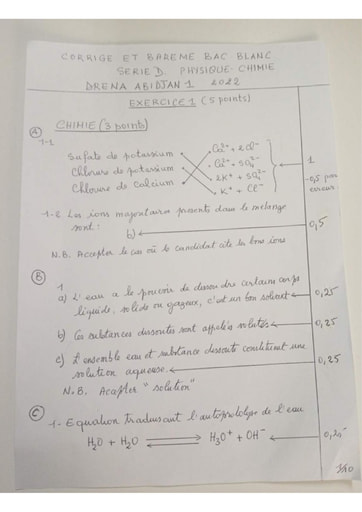 CORRIGE ET BAREME BAC BLANC
SERIE D PHYSIQUE-CHIMIE
DRENA ABIDJAN 1 2022
EXERCICE 1 (5 points)
A
CHIMIE (3 points)
1-1
Sulfate de potassium
Chlorure de potassium
Chlorure de calcium
Ca²⁺ + 2Cl⁻
Ca²⁺ + SO₄²⁻
2K⁺ + SO₄²⁻
K⁺ + Cl⁻
1
-0,5 par
erreur
1-2 Les ions majoritaires présents dans le mélange
sont :
b)
0,5
N.B. Accepter le cas où le candidat cite les bons ions
B
1
a) L'eau a le pouvoir de dissoudre certains corps
liquide, solide ou gazeux, c'est un bon solvant
0,25
b) Ces substances dissoutes sont appelées solutés
0,25
c) L'ensemble eau et substance dissoute constituent une
solution aqueuse.
0,25
N.B. Accepter "solution"
C
1- Equation traduisant l'autoprotolyse de l'eau
H₂O + H₂O ⇌ H₃O⁺ + OH⁻
0,25
1/10